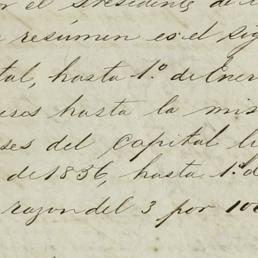 r el Presidente de l
resúmen es el sig
tal, hasta 1.º de Ener
esos hasta la mis
ses del capital li
de 1856, hasta 1.º d
razon del 3 por 100